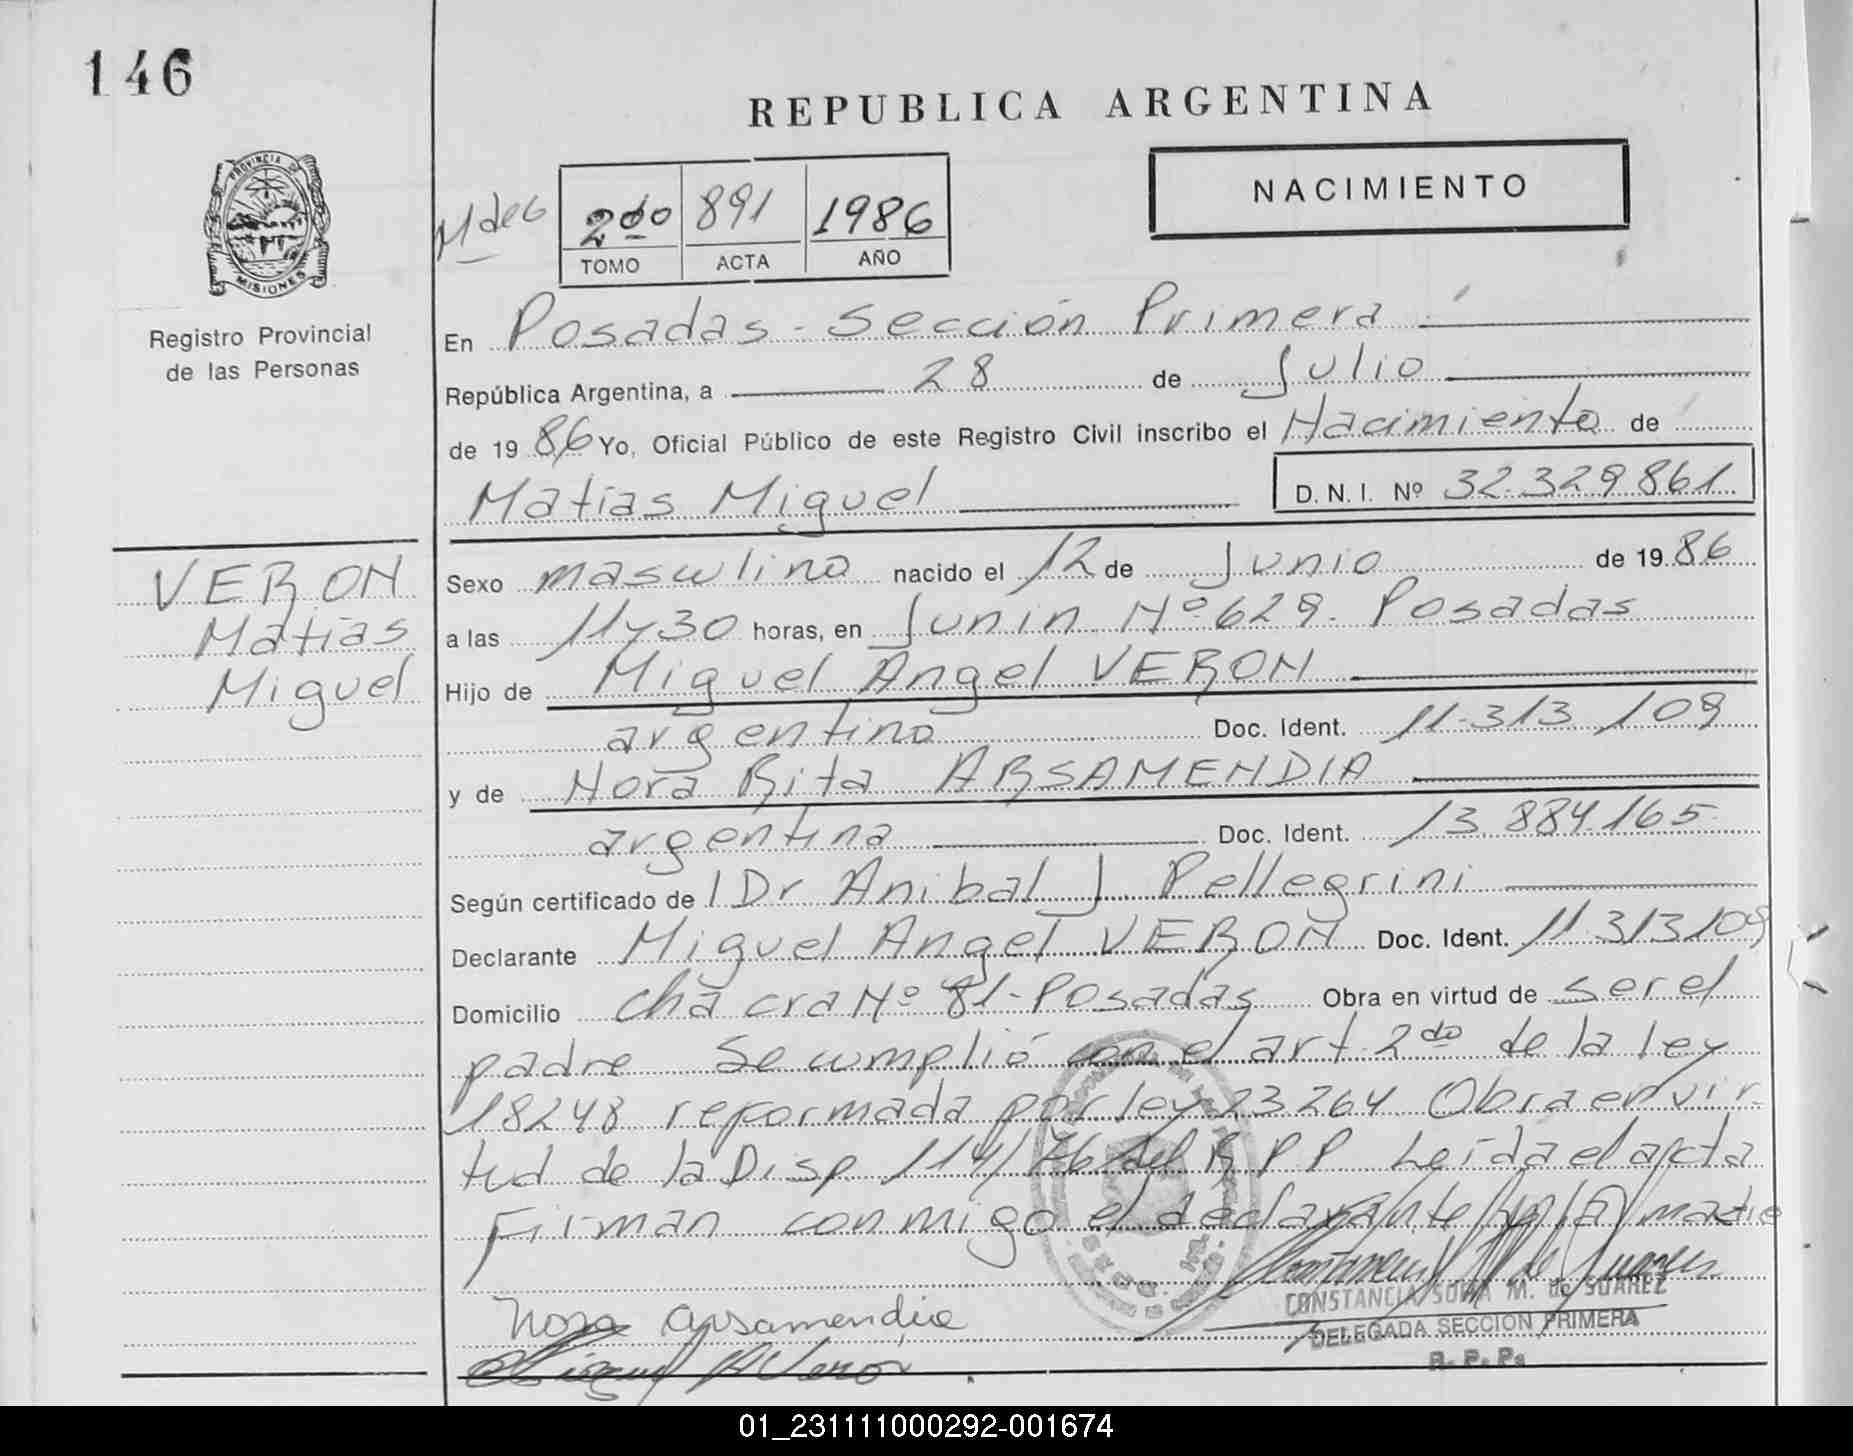 146
REPUBLICA ARGENTINA
NACIMIENTO
M de G
2do 891 1986
TOMO ACTA AÑO
PROVINCIA DE
MISIONES
Registro Provincial
de las Personas
En Posadas - Sección Primera
República Argentina, a 28 de Julio
de 1986 Yo, Oficial Público de este Registro Civil inscribo el Nacimiento de
Matias Miguel D. N. I. Nº 32.329.861
VERON
Matias
Miguel
Sexo masculino nacido el 12 de Junio de 1986
a las 11 y 30 horas, en Junin Nº 629. Posadas
Hijo de Miguel Angel VERON
argentino Doc. Ident. 11.313 109
y de Nora Rita ARSAMENDIA
argentina Doc. Ident. 13.884.165
Según certificado de l Dr Anibal J. Pellegrini
Declarante Miguel Angel VERON Doc. Ident. 11.313109
Domicilio chacra Nº 81 - Posadas Obra en virtud de ser el
padre Se cumplió con el art. 2do de la ley
18248 reformada por ley 23264 Obra en vir
tud de la Disp. 114/76 del R P P Leida el acta
Firman conmigo el declarante y la madre
Nora Arsamendia
CONSTANCIA SONIA M. de SUAREZ
DELEGADA SECCION PRIMERA
R. P. Ps
01_231111000292-001674